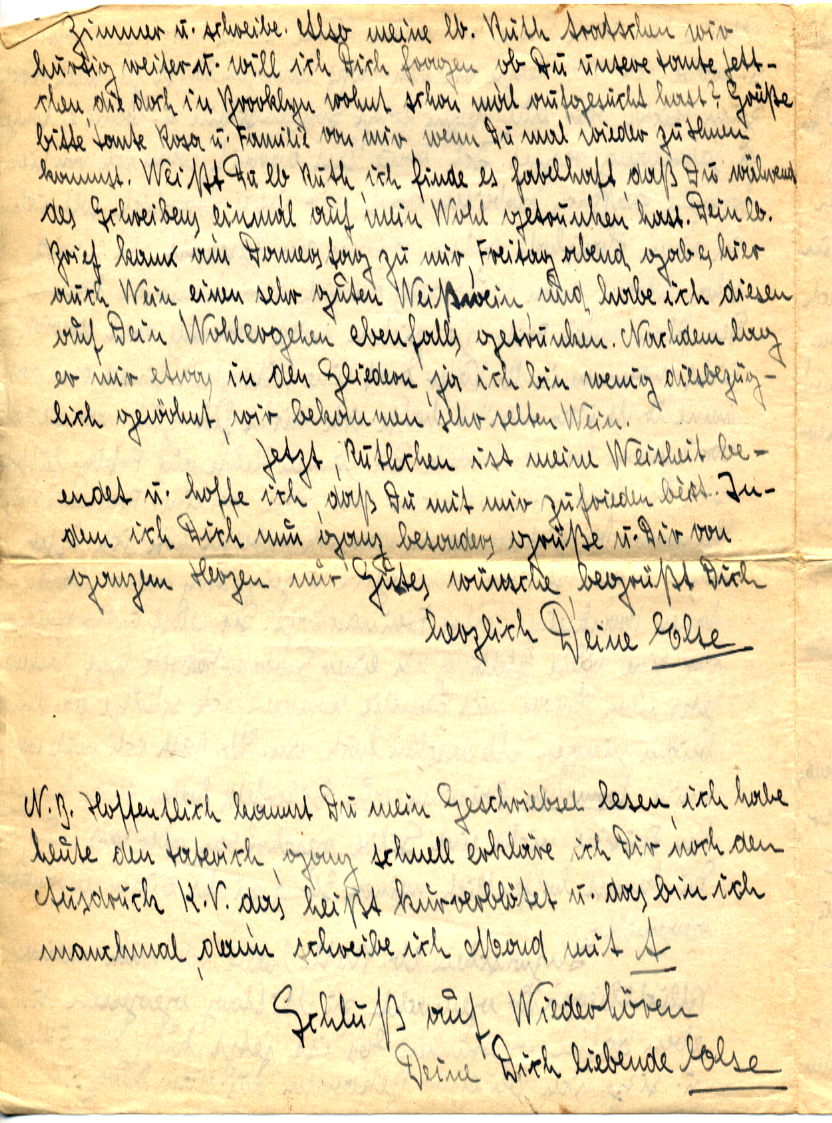 Zimmer u. schreibe. Also meine lb. Ruth tratschen wir
hurtig weiter u. will ich Dich fragen ob Du unsere Tante Jett-
chen, die doch in Brooklyn wohnt schon mal aufgesucht hast? Grüße
bitte Tante Rosa u. Familie von mir, wenn Du mal wieder zu Ihnen
kommst. Weißt Du lb Ruth, ich finde es fabelhaft daß Du während
des Schreibens einmal auf mein Wohl getrunken hast. Dein lb.
Brief kam am Donnerstag zu mir, Freitag abend, gab es hier
auch Wein einen sehr guten Weißwein, und habe ich diesen
auf Dein Wohlergehen ebenfalls getrunken. Nachdem lag
er mir etwas in den Gliedern, ja ich bin wenig diesbezüg-
lich gewöhnt, wir bekommen sehr selten Wein.
Jetzt, Ruthchen ist meine Weisheit be-
endet u. hoffe ich, daß Du mit mir zufrieden bist. In-
dem ich Dich nun ganz besonders grüße u. Dir von
ganzem Herzen nur Gutes wünsche, begrüßt Dich
herzlich Deine Else
N.B. Hoffentlich kannst Du mein Geschriebsel lesen, ich habe
heute den Taterich, ganz schnell erkläre ich Dir noch den
Ausdruck K.V. das heißt kurverblötet u. das bin ich
manchmal, dann schreibe ich Mond mit A
Schluß auf Wiederhören
Deine Dich liebende Else